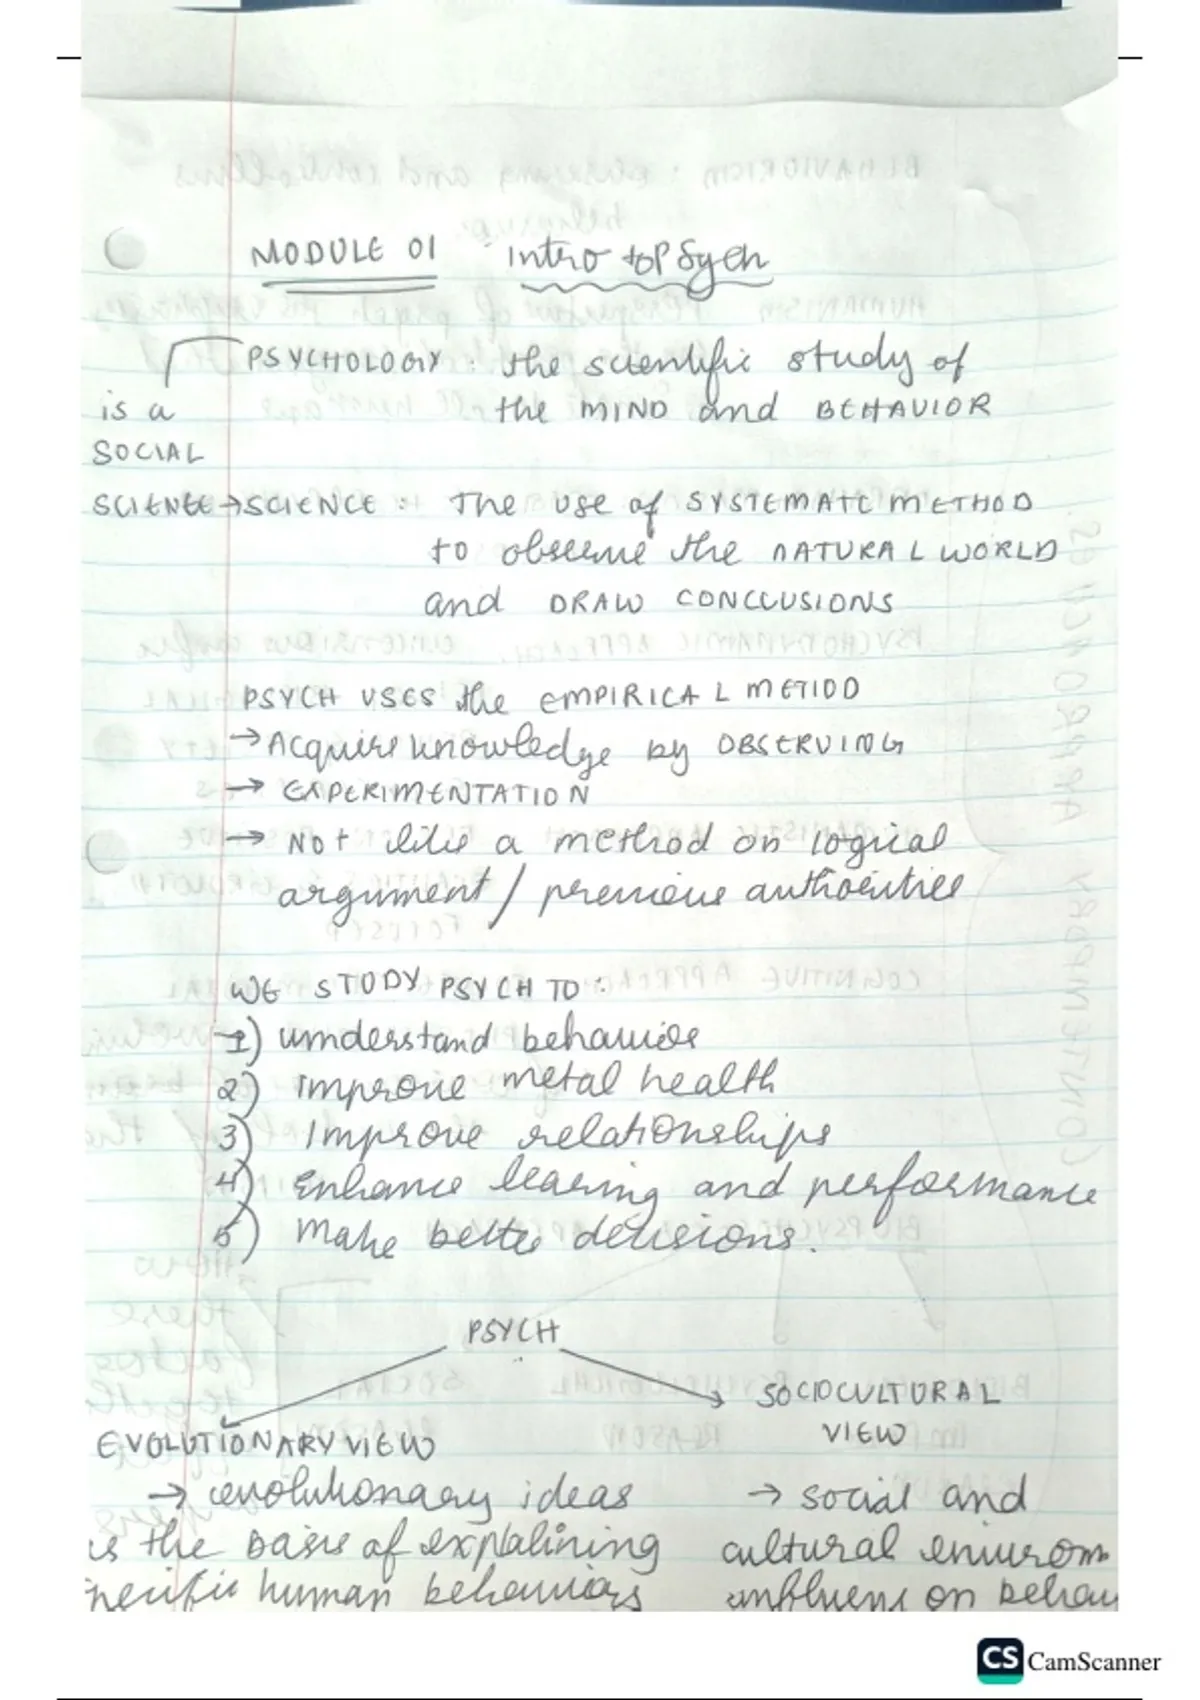 MODULE 01 Intro to Psych
PSYCHOLOGY : the scientific study of
is a the MIND and BEHAVIOR
SOCIAL
SCIENCE → SCIENCE : The use of SYSTEMATC METHOD
to observe the NATURAL WORLD
and DRAW CONCLUSIONS
PSYCH USES the EMPIRICAL METHOD
→ Acquire knowledge by OBSERVING
→ EXPERIMENTATION
→ Not like a method on logical
argument / previous authorities
WE STUDY PSYCH TO :
1) understand behavior
2) Improve metal health
3) Improve relationships
4) Enhance learing and performance
5) Make better decisions.
PSYCH
SOCIOCULTURAL
EVOLUTIONARY VIEW VIEW
→ evolutionary ideas → social and
is the basis of explaining cultural environm
human behaviors on behav
CS CamScanner